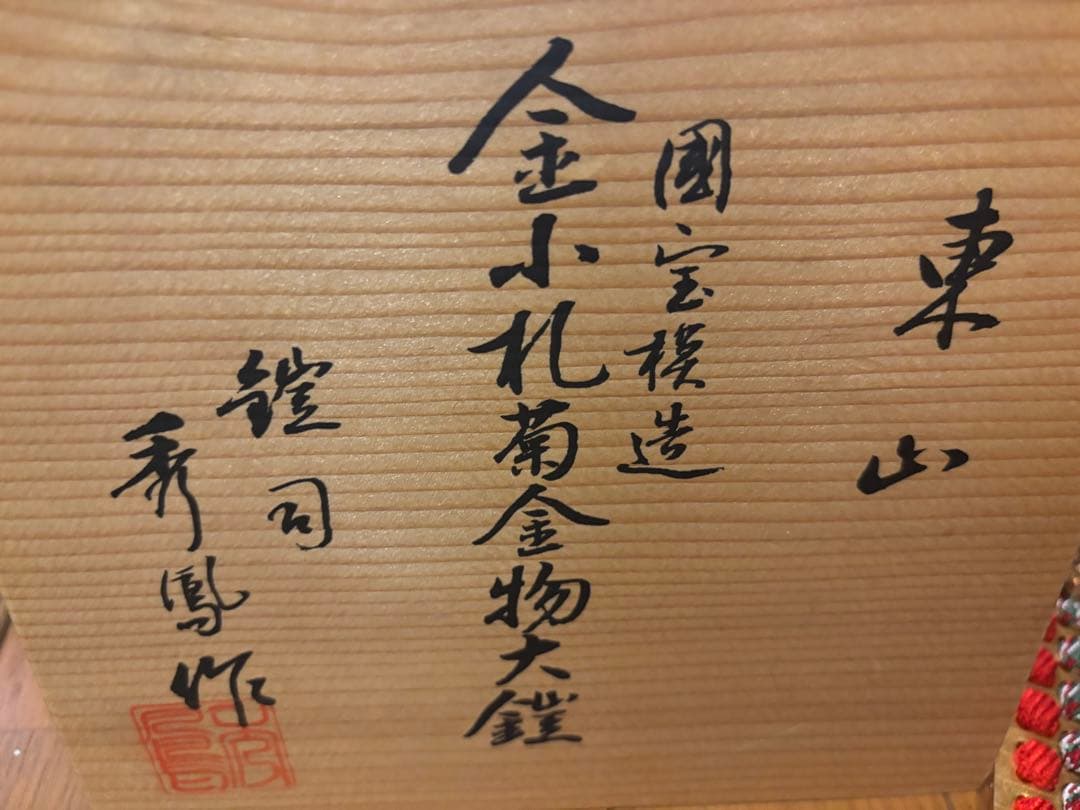 東山
國宝模造
金小札菊金物大鎧
鎧司
秀鳳作